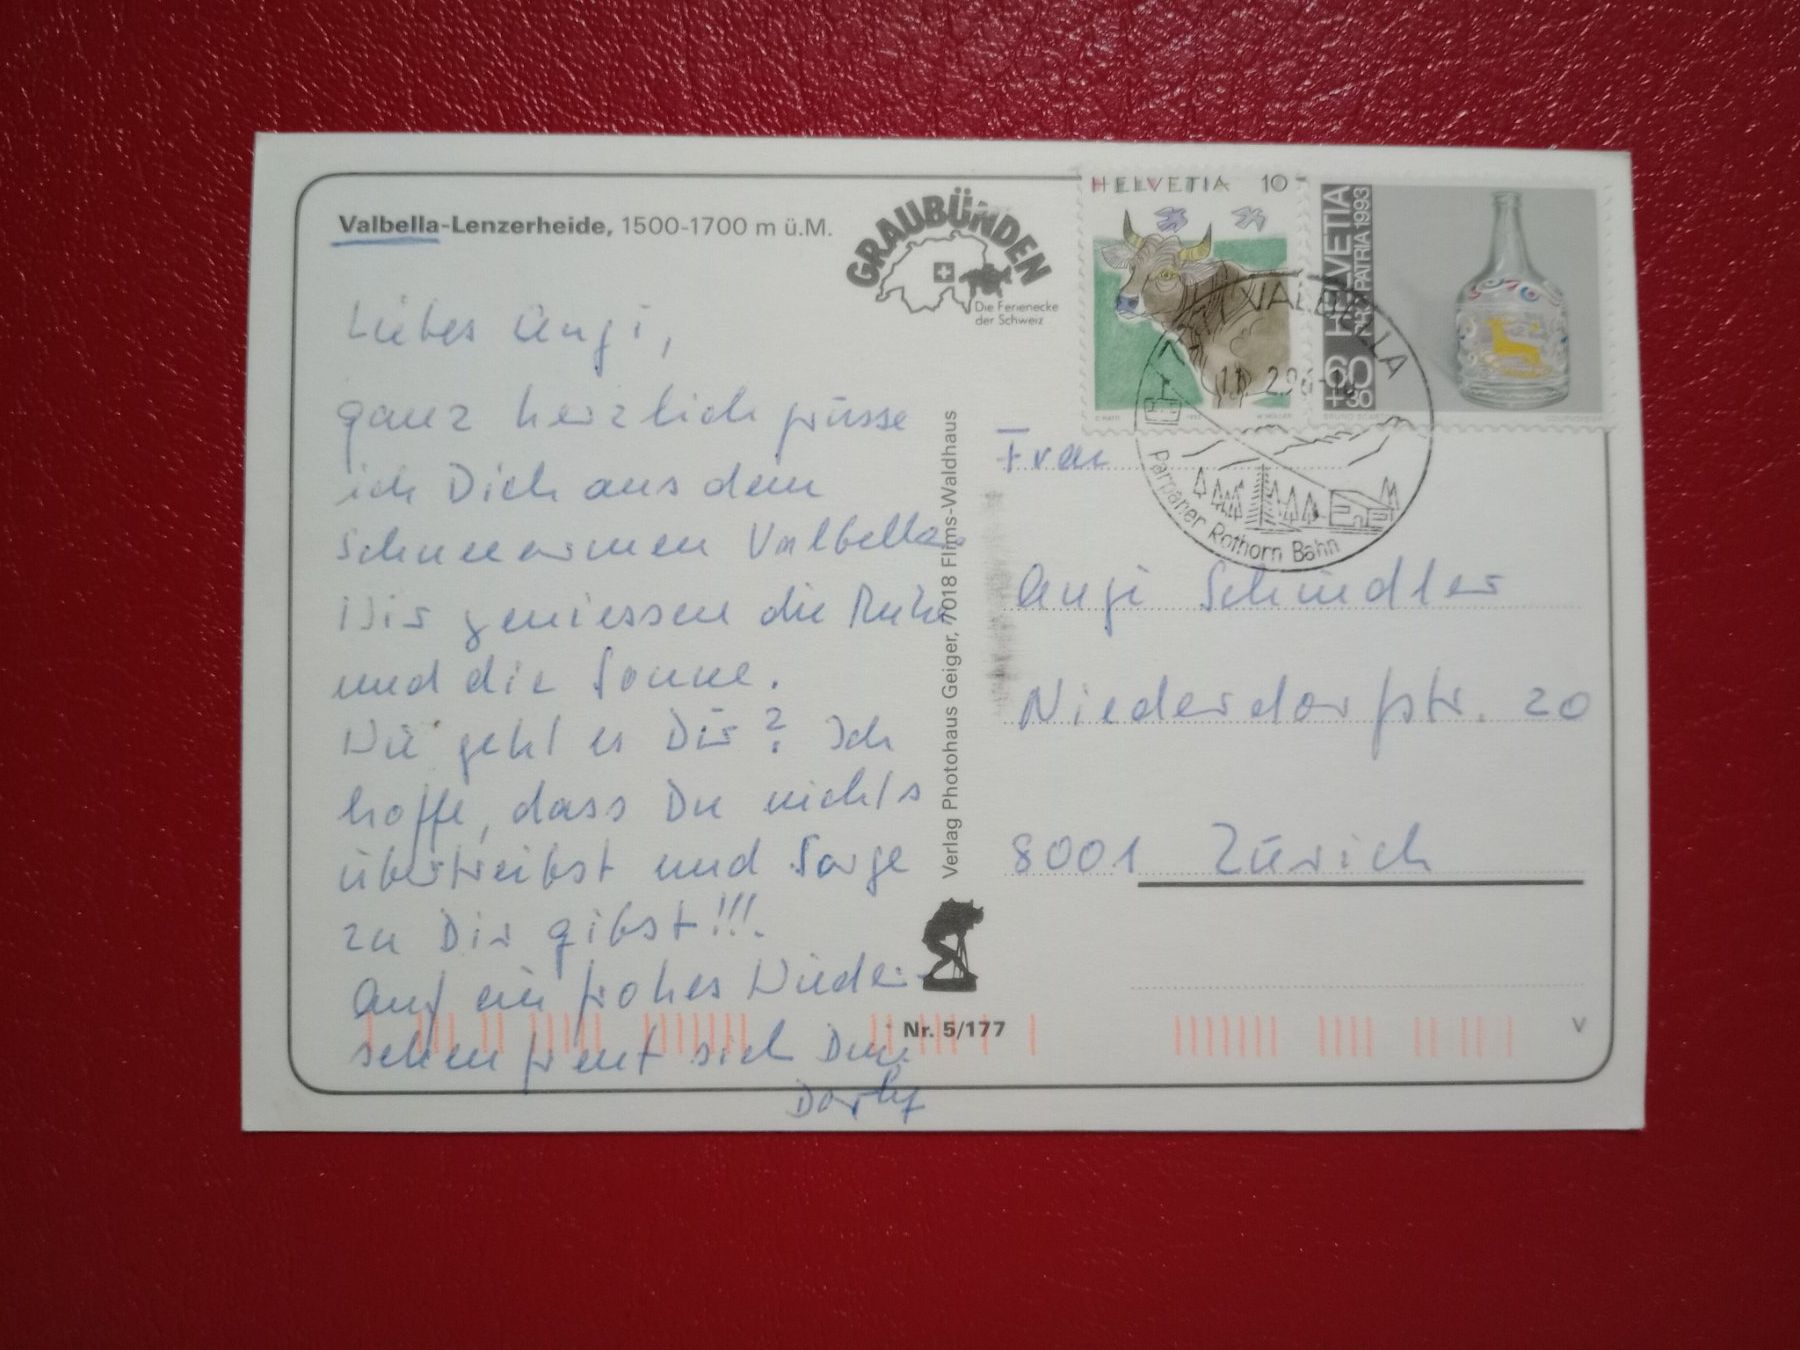 Valbella-Lenzerheide, 1500-1700 m ü.M.
GRAUBÜNDEN
Die Ferienecke
der Schweiz
HELVETIA 10
HELVETIA
PRO PATRIA 1993
60
+30
VALBELLA
Parpaner Rothorn Bahn
Liebes Angi,
ganz herzlich grüsse
ich Dich aus dem
schneearmen Valbella.
Wir geniessen die Ruhe
und die Sonne.
Wie geht es Dir? Ich
hoffe, dass Du nichts
übertreibst und Sorge
zu Dir gibst!!!
Auf ein frohes Wieder-
sehen freut sich Deine
Dorly
Verlag Photohaus Geiger, 7018 Flims-Waldhaus
Nr. 5/177
Frau
Angi Schindler
Niederdorfstr. 20
8001 Zürich
V